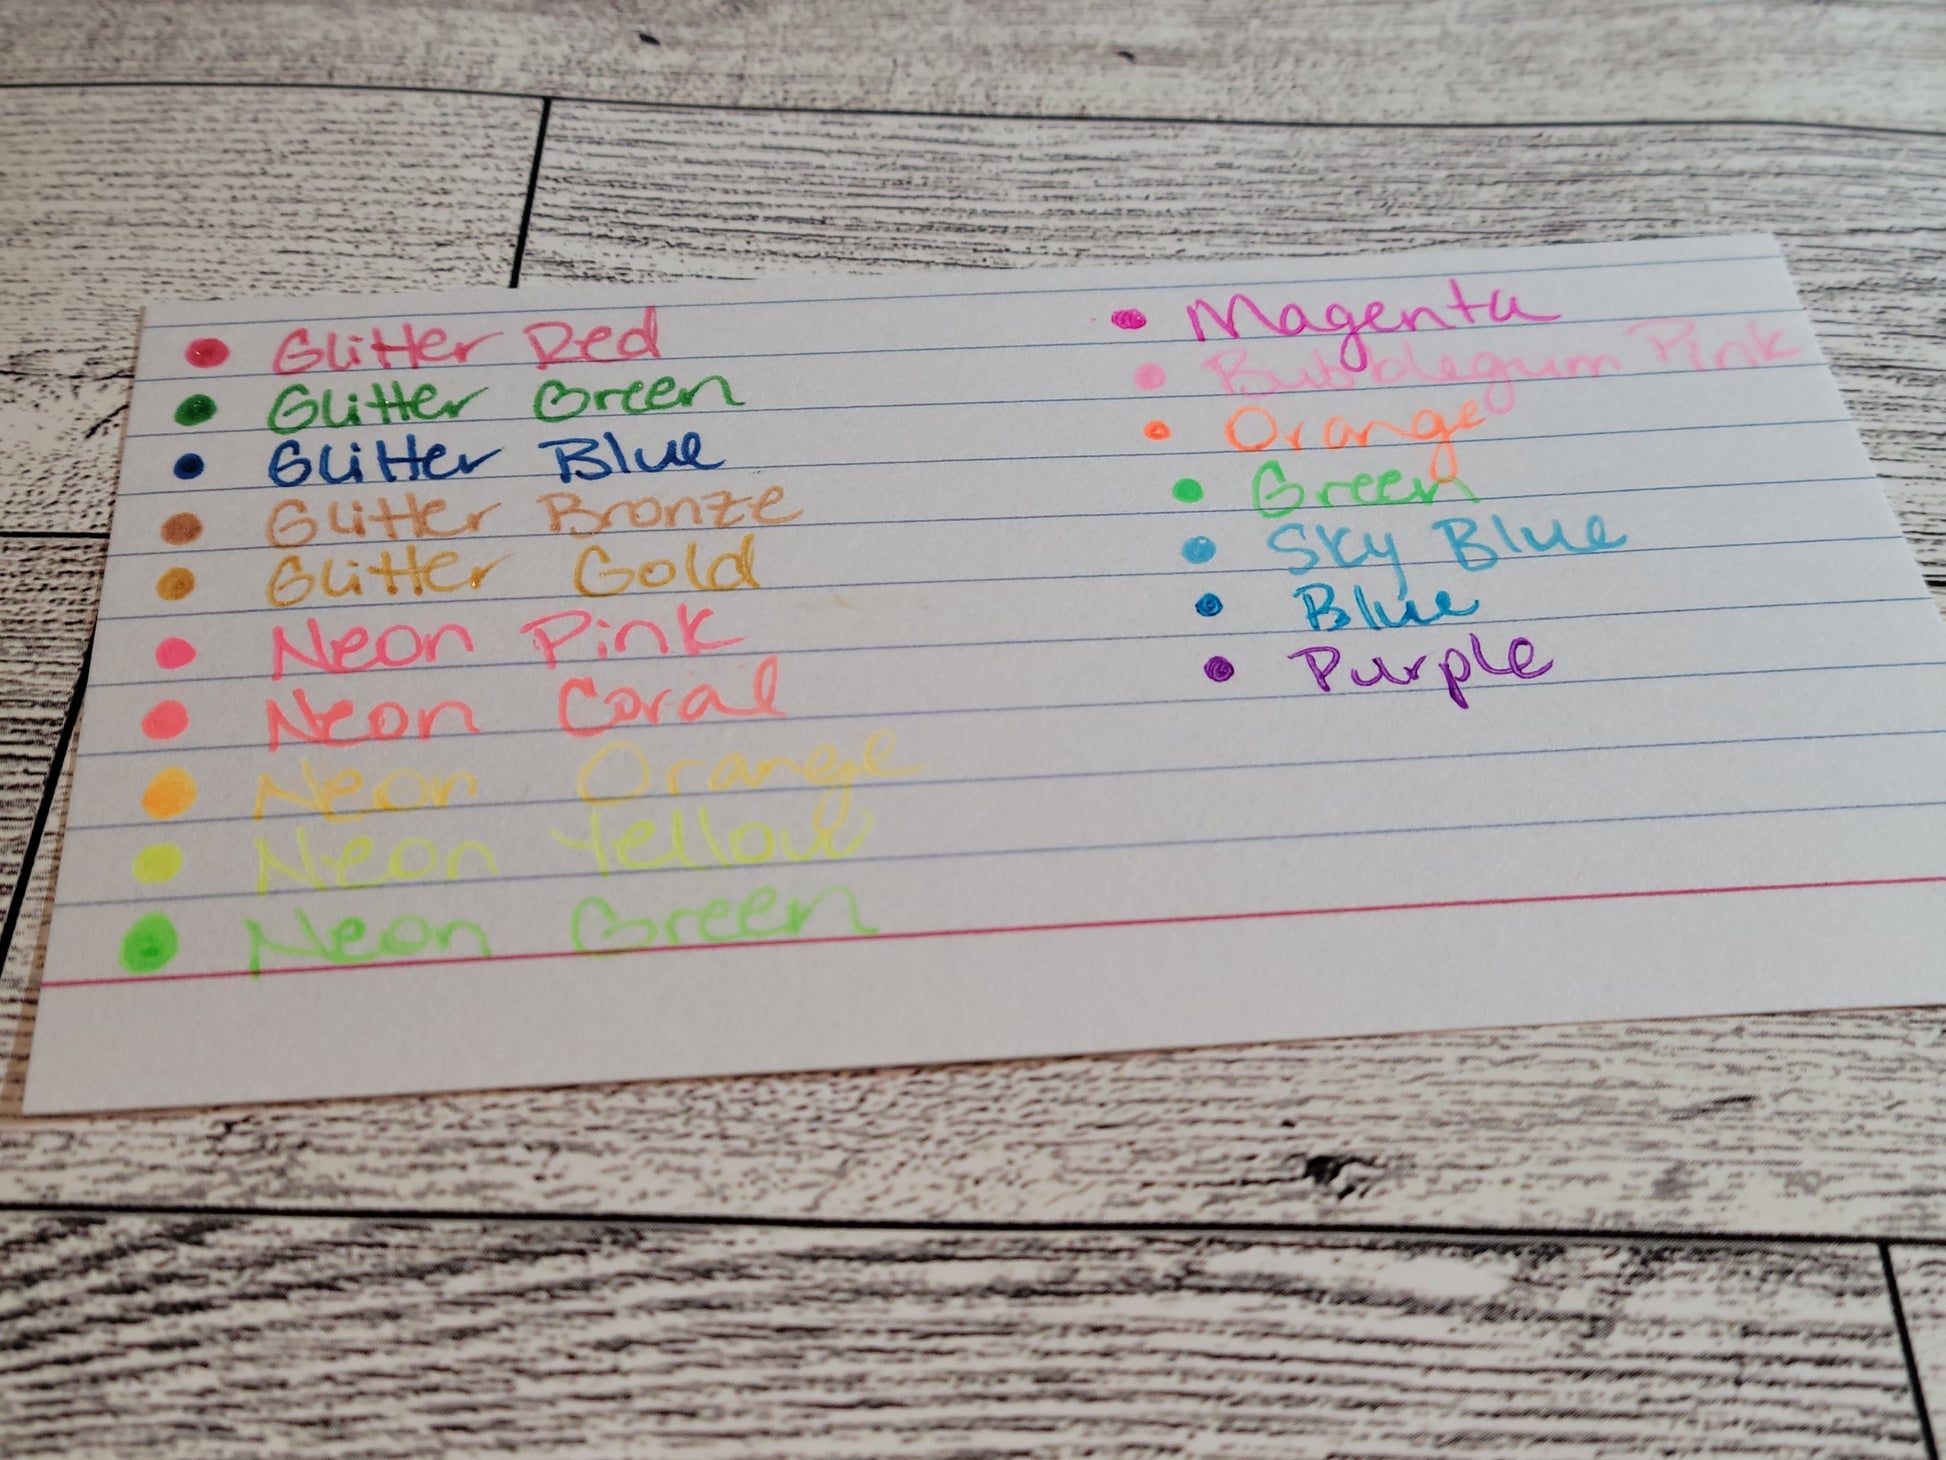 • Glitter Red
• Glitter Green
• Glitter Blue
• Glitter Bronze
• Glitter Gold
• Neon Pink
• Neon Coral
• Neon Orange
• Neon Yellow
• Neon Green
• Magenta
• Bubblegum Pink
• Orange
• Green
• Sky Blue
• Blue
• Purple